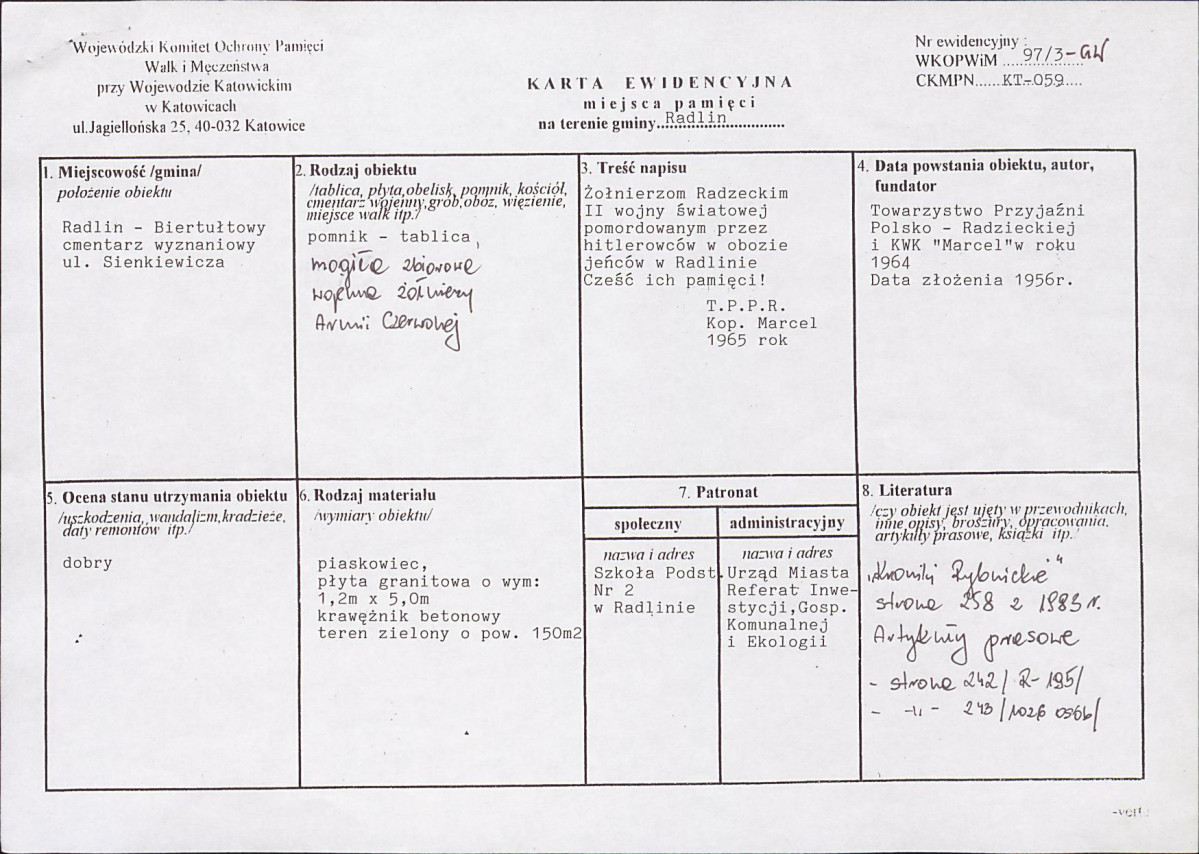 Wojewódzki Komitet Ochrony Pamięci
Walk i Męczeństwa
przy Wojewodzie Katowickim
w Katowicach
ul.Jagiellońska 25, 40-032 Katowice
KARTA EWIDENCYJNA
miejsca pamięci
na terenie gminy..Radlin..............
Nr ewidencyjny :
WKOPWiM ....97/3-GW
CKMPN......KT-059....
1. Miejscowość /gmina/
położenie obiektu
Radlin - Biertułtowy
cmentarz wyznaniowy
ul. Sienkiewicza
2. Rodzaj obiektu
/tablica, płyta,obelisk, pomnik, kościół,
cmentarz wojenny,grób,obóz, więzienie,
miejsce walk itp./
pomnik - tablica,
mogiła zbiorowa
wojenna żołnierzy
Armii Czerwonej
3. Treść napisu
Żołnierzom Radzeckim
II wojny światowej
pomordowanym przez
hitlerowców w obozie
jeńców w Radlinie
Cześć ich pamięci!
T.P.P.R.
Kop. Marcel
1965 rok
4. Data powstania obiektu, autor,
fundator
Towarzystwo Przyjaźni
Polsko - Radzieckiej
i KWK "Marcel"w roku
1964
Data złożenia 1956r.
5. Ocena stanu utrzymania obiektu
/uszkodzenia, wandalizm,kradzieże,
daty remontów itp./
dobry
6. Rodzaj materiału
/wymiary obiektu/
piaskowiec,
płyta granitowa o wym:
1,2m x 5,0m
krawężnik betonowy
teren zielony o pow. 150m2
7. Patronat
społeczny
nazwa i adres
Szkoła Podst.
Nr 2
w Radlinie
administracyjny
nazwa i adres
Urząd Miasta
Referat Inwe-
stycji,Gosp.
Komunalnej
i Ekologii
8. Literatura
/czy obiekt jest ujęty w przewodnikach,
inne opisy, broszury, opracowania,
artykuły prasowe, książki itp./
"Kroniki Rybnickie"
strona 258 z 1983 r.
Artykuły prasowe
- strona 242/ R-195/
- -"- 243